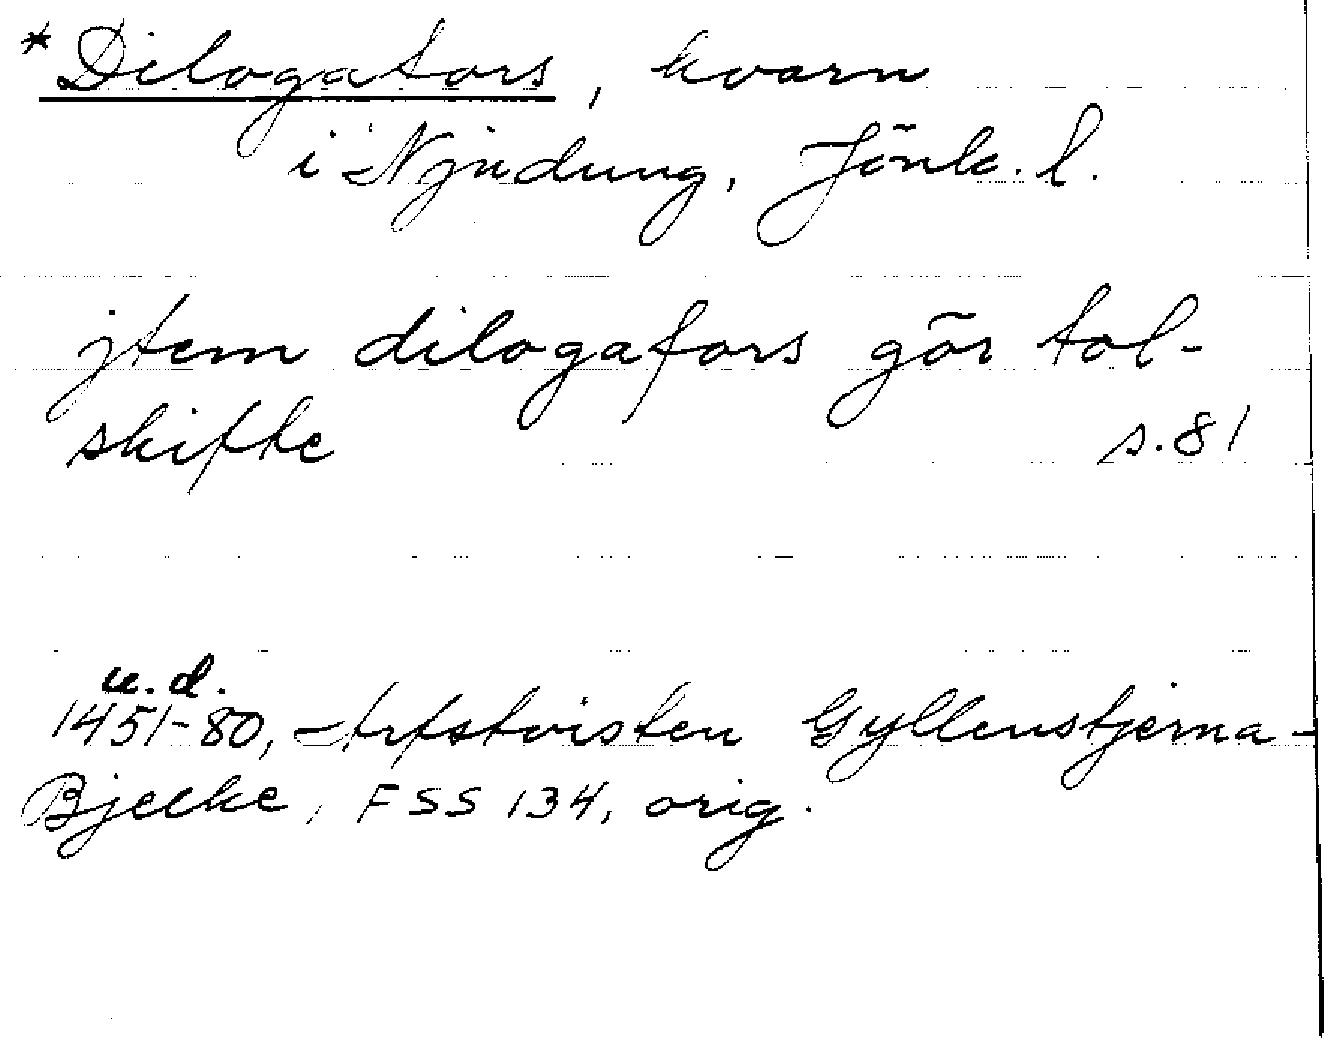 *Dilogafors, kvarn
i Njudung, Jönk. l.
jtem dilogafors gör tol-
skifte s.81
u.d.
1451-80, Arfstvisten Gyllenstjerna-
Bjelke, FSS 134, orig.